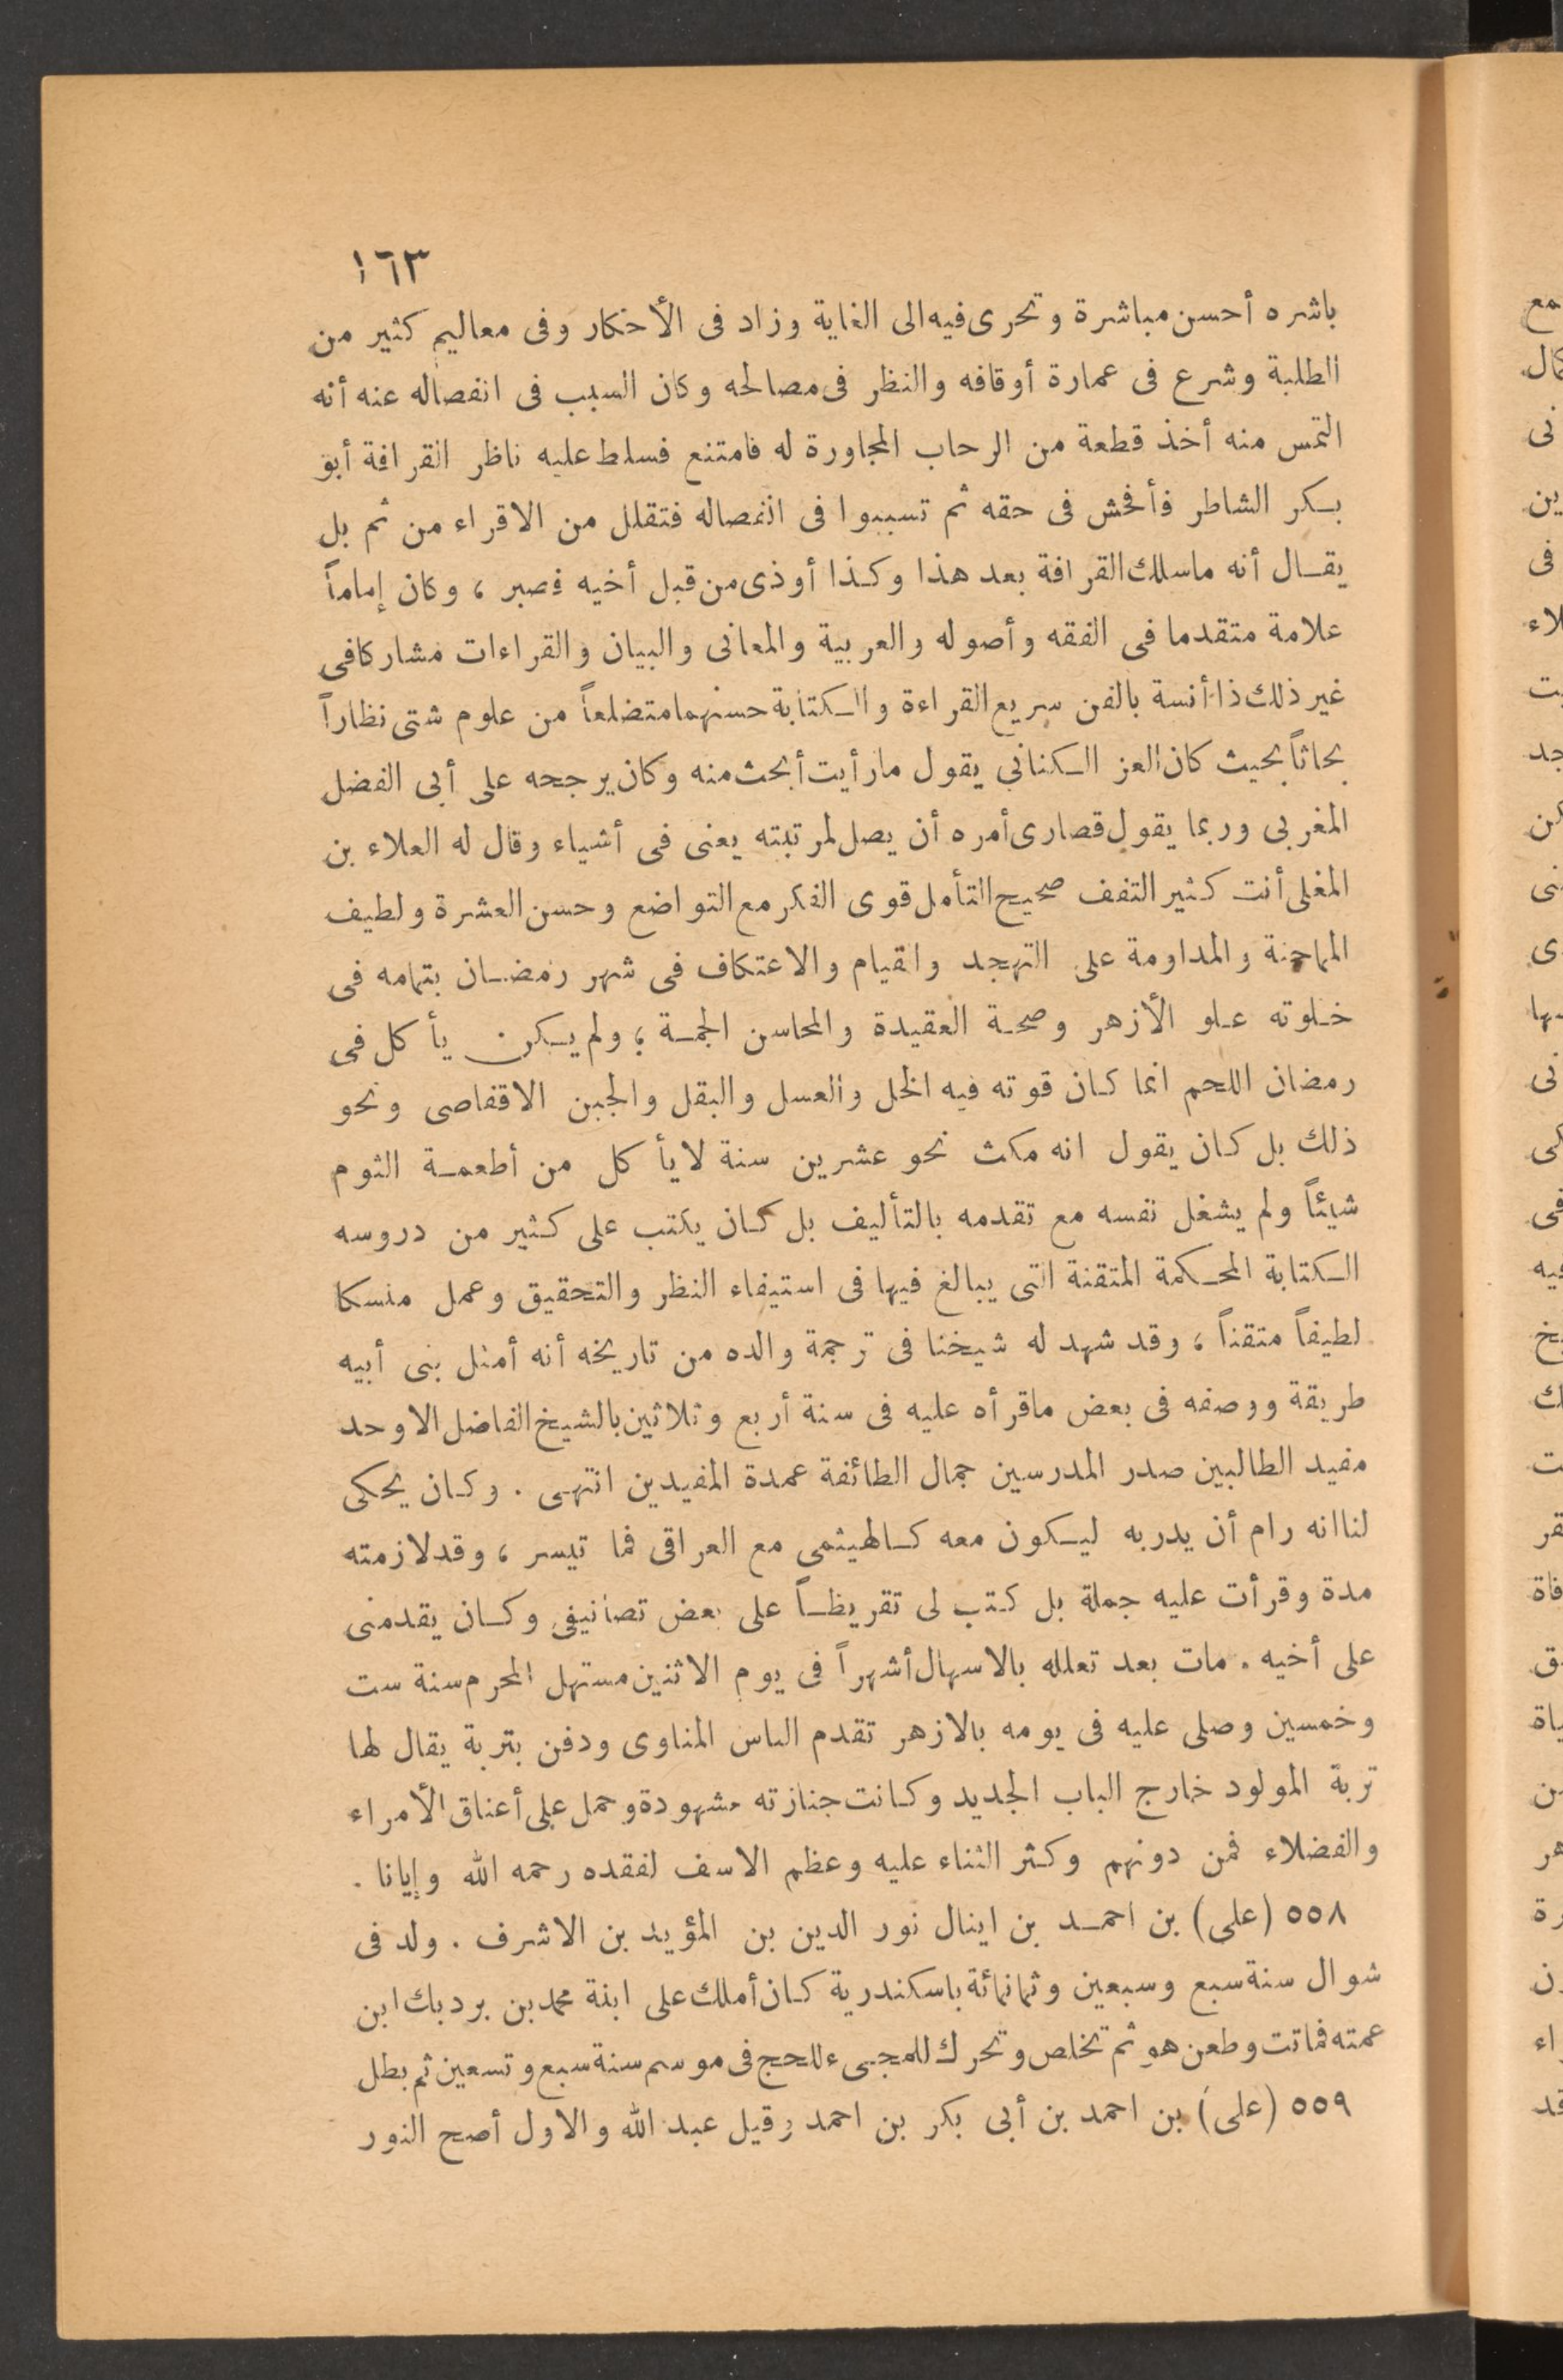 ١٦٣
باشره أحسن مباشرة وتحرى فيه الى الغاية وزاد فى الأحكار وفى معاليم كثير من
الطلبة وشرع فى عمارة أوقافه والنظر فى مصالحه وكان السبب فى انفصاله عنه أنه
التمس منه أخذ قطعة من الرحاب المجاورة له فامتنع فسلط عليه ناظر القرافة أبو
بكر الشاطر فأفحش فى حقه ثم تسببوا فى انفصاله فتقلل من الاقراء من ثم بل
يقال أنه ماسلك القرافة بعد هذا وكذا أوذى من قبل أخيه فصبر ، وكان إماماً
علامة متقدما فى الفقه وأصوله والعربية والمعانى والبيان والقراءات مشاركا فى
غير ذلك ذا أنسة بالفن سريع القراءة والكتابة حسنهما متضلعاً من علوم شتى نظاراً
بحاثاً بحيث كان العز الكنانى يقول مارأيت أبحث منه وكان يرجحه على أبى الفضل
المغربى وربما يقول قصارى أمره أن يصل لمرتبته يعنى فى أشياء وقال له العلاء بن
المغلى أنت كثير التفف صحيح التأمل قوى الفكر مع التواضع وحسن العشرة ولطيف
المماجنة والمداومة على التهجد والقيام والاعتكاف فى شهر رمضان بتمامه فى
خلوته علو الأزهر وصحة العقيدة والمحاسن الجمة ؛ ولم يكن يأكل فى
رمضان اللحم انما كان قوته فيه الخل والعسل والبقل والجبن الاقفاصى ونحو
ذلك بل كان يقول انه مكث نحو عشرين سنة لا يأكل من أطعمة الثوم
شيئاً ولم يشغل نفسه مع تقدمه بالتأليف بل كان يكتب على كثير من دروسه
الكتابة المحكمة المتقنة التى يبالغ فيها فى استيفاء النظر والتحقيق وعمل منسكا
لطيفاً متقناً ؛ وقد شهد له شيخنا فى ترجمة والده من تاريخه أنه أمثل بنى أبيه
طريقة ووصفه فى بعض ماقرأه عليه فى سنة أربع وثلاثين بالشيخ الفاضل الاوحد
مفيد الطالبين صدر المدرسين جمال الطائفة عمدة المفيدين انتهى . وكان يحكى
لنا انه رام أن يدربه ليكون معه كالهيثمى مع العراقى فما تيسر ، وقد لازمته
مدة وقرأت عليه جملة بل كتب لى تقريظاً على بعض تصانيفى وكان يقدمنى
على أخيه . مات بعد تعلله بالاسهال أشهراً فى يوم الاثنين مستهل المحرم سنة ست
وخمسين وصلى عليه فى يومه بالازهر تقدم الناس المناوى ودفن بتربة يقال لها
تربة المولود خارج الباب الجديد وكانت جنازته مشهودة وحمل على أعناق الأمراء
والفضلاء فمن دونهم وكثر الثناء عليه وعظم الاسف لفقده رحمه الله وإيانا .
٥٥٨ (على) بن احمد بن اينال نور الدين بن المؤيد بن الاشرف . ولد فى
شوال سنة سبع وسبعين وثمانمائة باسكندرية كان أملك على ابنة محمد بن بردبك ابن
عمته فماتت وطعن هو ثم تخلص وتحرك للمجىء للحج فى موسم سنة سبع وتسعين ثم بطل
٥٥٩ (على) بن احمد بن أبى بكر بن احمد وقيل عبد الله والاول أصح النور